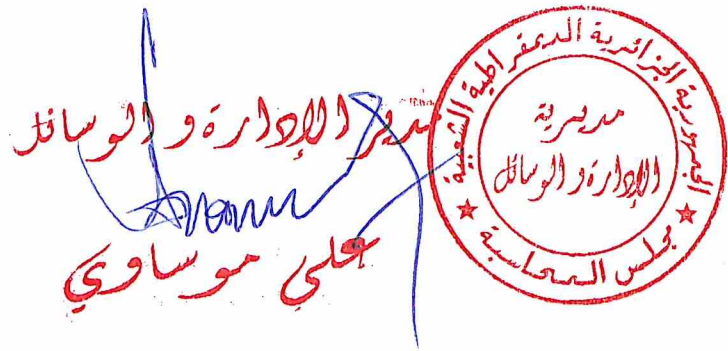 مدير الإدارة و الوسائل
علي موساوي
الجمهورية الجزائرية الديمقراطية الشعبية
مديرية
الإدارة و الوسائل
★ مجلس المحاسبة ★